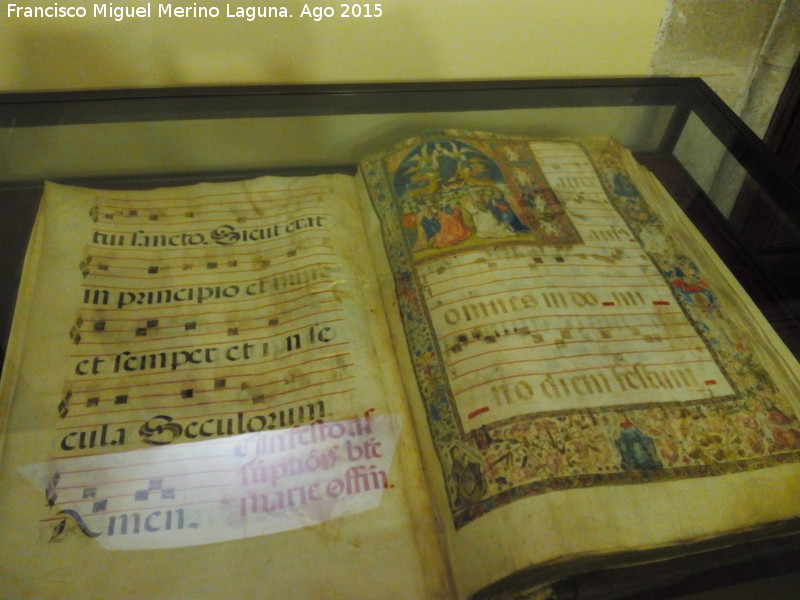 Francisco Miguel Merino Laguna. Ago 2015
tui sancto. Sicut erat
in principio et nunc
et semper et in se
cula Seculorum
Amen.
In festo as
sūptiōis bte
marie offm.
omnes in do mi
no diem festum